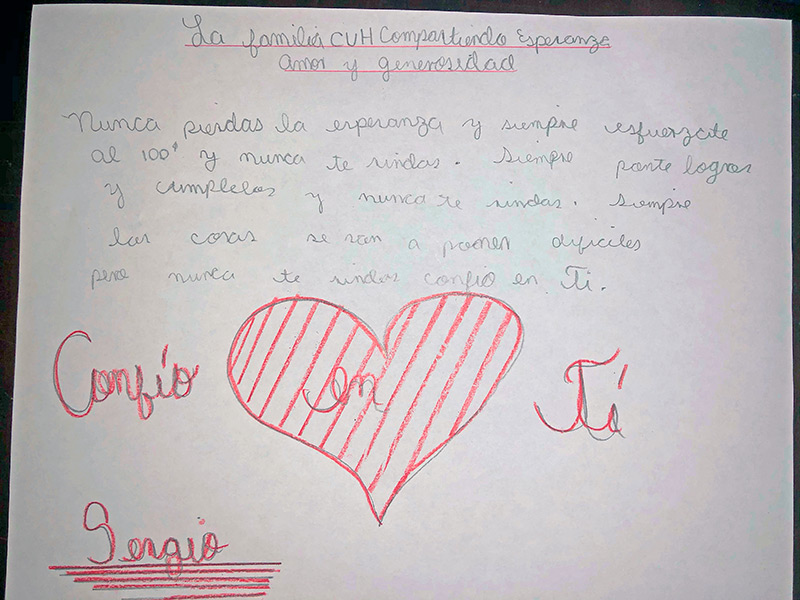 La familia CVH Compartiendo Esperanza
Amor y generosidad
Nunca pierdas la esperanza y siempre esfuerzate
al 100% y nunca te rindas. Siempre ponte logros
y cumplelos y nunca te rindas. Siempre
las cosas se van a poner dificiles
pero nunca te rindas confío en Ti.
Confío en Tí
Sergio